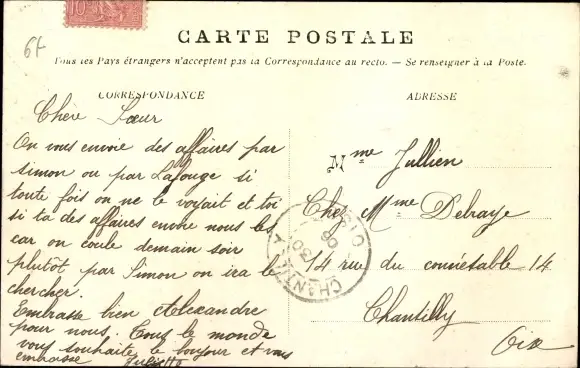 10
6f
CARTE POSTALE
Tous les Pays étrangers n'acceptent pas la Correspondance au recto. — Se renseigner à la Poste.
CORRESPONDANCE
Chère Sœur
On vous envoie des affaires par
simon ou par Lafouge si
toute fois on ne le voyait et toi
si ta des affaires envoie nous les
car on coule demain soir
plutôt par Simon on ira le
chercher.
Embrasse bien Alexandre
pour nous. Tous le monde
vous souhaite le bonjour et vous
embrasse Juliette
ADRESSE
Mme Jullien
Chez Mme Delraye
14 rue du connétable 14
Chantilly
Oise
CHANTILLY
OISE